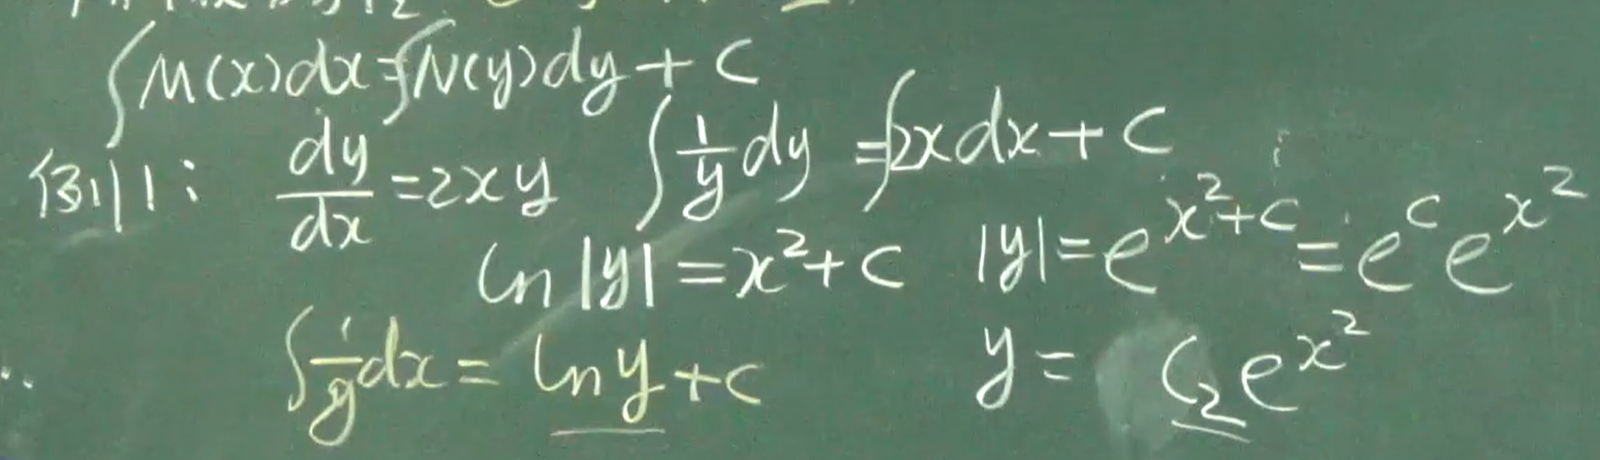 ∫M(x)dx=∫N(y)dy+C
例1: dy/dx=2xy ∫1/y dy=∫2xdx+C
ln|y|=x²+C |y|=e^{x²+C}=e^C e^{x²}
∫1/y dx=ln y+C y=C₂e^{x²}